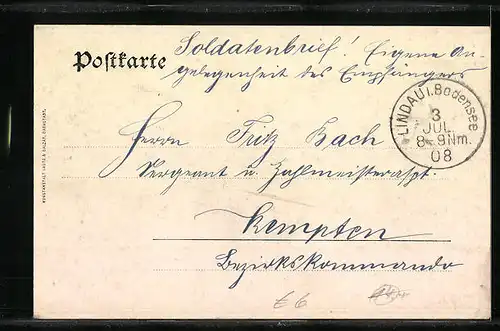 Postkarte
Soldatenbrief! Eigene An-
gelegenheit des Empfängers
LINDAU i. Bodensee
3
JUL
8-9Nm.
08
Herrn Fritz Bach
Sergeant u. Zahlmeisteraspt.
Kempten
Bezirkskommando
€6